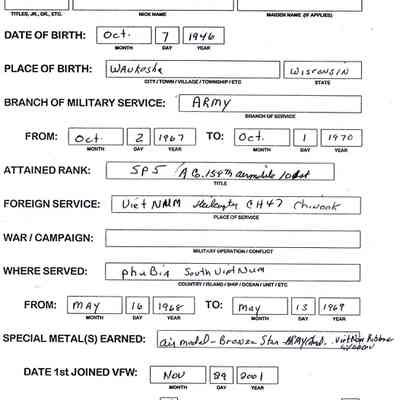 TITLES, JR., CR., ETC. NICK NAME MAIDEN NAME (IF APPLIES)
DATE OF BIRTH: Oct. 7 1946
MONTH DAY YEAR
PLACE OF BIRTH: Waukesha Wisconsin
CITY / TOWN / VILLAGE / TOWNSHIP / ETC STATE
BRANCH OF MILITARY SERVICE: ARMY
BRANCH OF SERVICE
FROM: Oct. 2 1967 TO: Oct. 1 1970
MONTH DAY YEAR MONTH DAY YEAR
ATTAINED RANK: SP5 / A Co. 159th
TITLE
FOREIGN SERVICE: Viet NUM CH47 Chinook
PLACE OF SERVICE
WAR / CAMPAIGN:
MILITARY OPERATION / CONFLICT
WHERE SERVED: phuBia South Viet Num
COUNTRY / ISLAND / SHIP / OCEAN / UNIT / ETC
FROM: MAY 16 1968 TO: May 13 1969
MONTH DAY YEAR MONTH DAY YEAR
SPECIAL METAL(S) EARNED: air medal - Bronze Star
DATE 1st JOINED VFW: Nov 29 2001
MONTH DAY YEAR